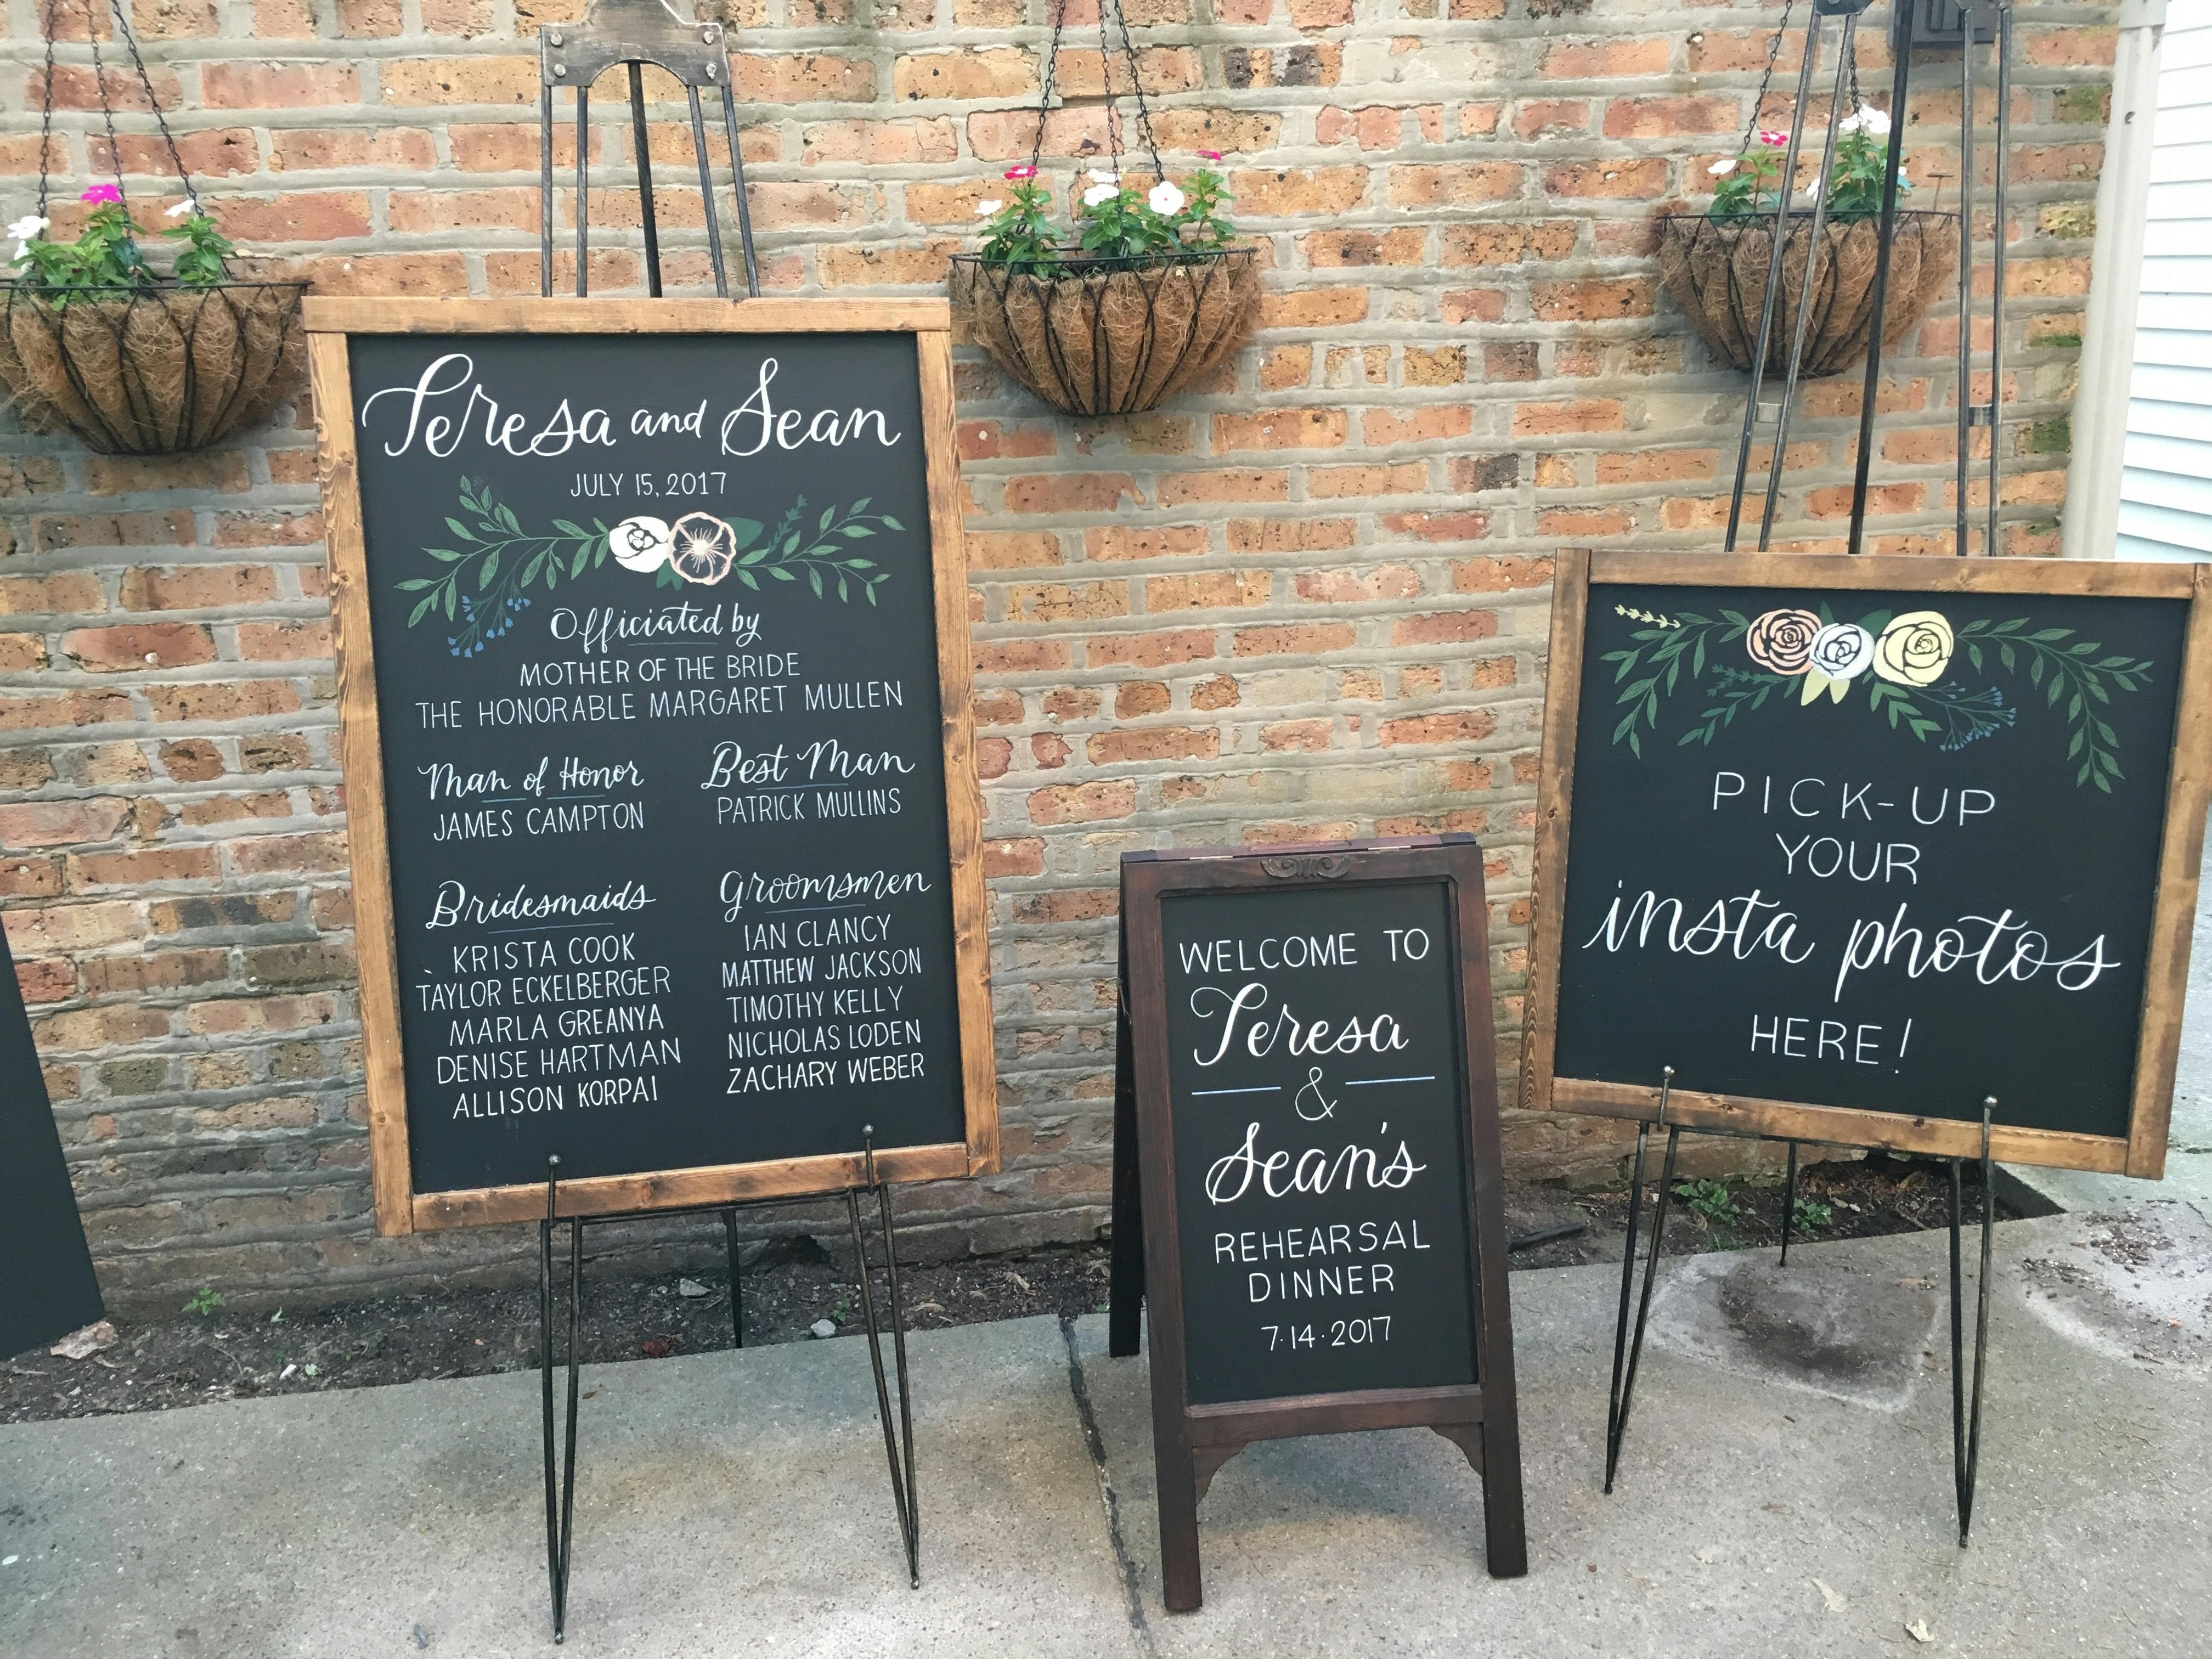 Teresa and Sean
JULY 15, 2017
Officiated by
MOTHER OF THE BRIDE
THE HONORABLE MARGARET MULLEN
Man of Honor
JAMES CAMPTON
Best Man
PATRICK MULLINS
Bridesmaids
KRISTA COOK
TAYLOR ECKELBERGER
MARLA GREANYA
DENISE HARTMAN
ALLISON KORPAI
Groomsmen
IAN CLANCY
MATTHEW JACKSON
TIMOTHY KELLY
NICHOLAS LODEN
ZACHARY WEBER
WELCOME TO
Teresa
&
Sean's
REHEARSAL
DINNER
7·14·2017
PICK-UP
YOUR
insta photos
HERE!